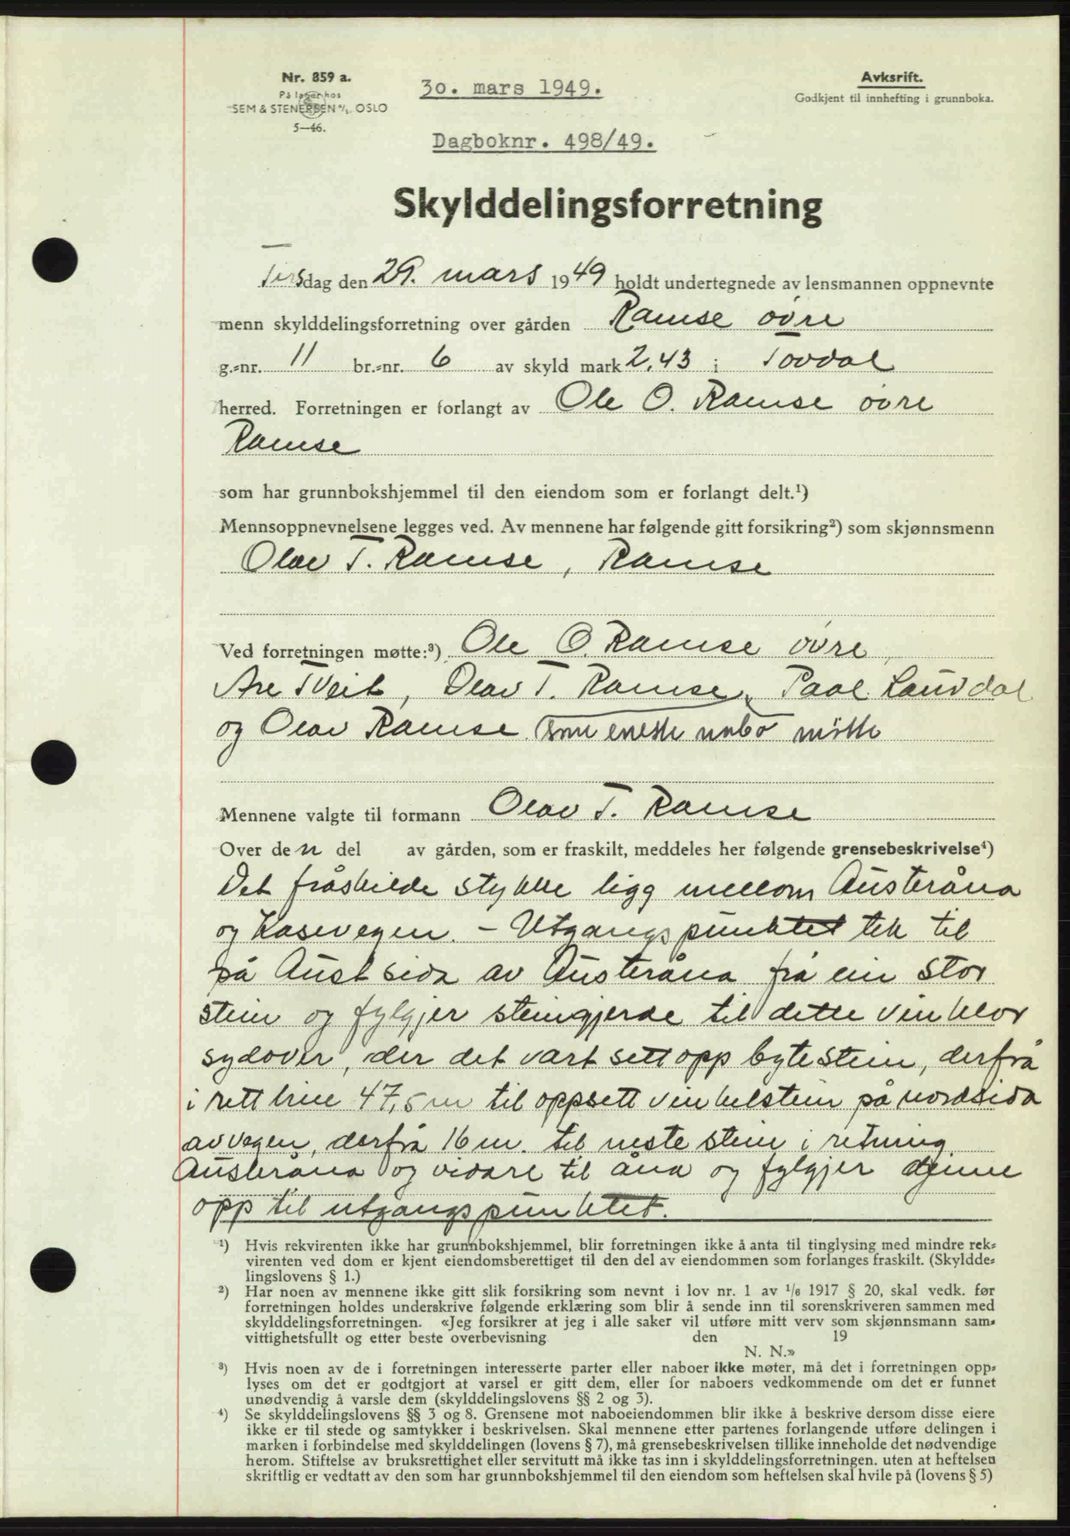 Nr. 859 a.
På lager hos
SEM & STENERSEN A/S. OSLO
5—46.
30. mars 1949.
Dagboknr. 498/49.
Avksrift.
Godkjent til innhefting i grunnboka.
Skylddelingsforretning
Tirsdag den 29. mars 1949 holdt undertegnede av lensmannen oppnevnte
menn skylddelingsforretning over gården Ramse øvre
g.-nr. 11 br.-nr. 6 av skyld mark 2,43 i Tovdal
herred. Forretningen er forlangt av Ole O. Ramse øvre
Ramse
som har grunnbokshjemmel til den eiendom som er forlangt delt.¹)
Mennsoppnevnelsene legges ved. Av mennene har følgende gitt forsikring²) som skjønnsmenn
Olav T. Ramse, Ramse
Ved forretningen møtte:³) Ole O. Ramse øvre,
Are Tveit, Olav T. Ramse, Paal Lauvdal
og Olav Ramse (som eneste nabo møtte
Mennene valgte til formann Olav T. Ramse
Over den del av gården, som er fraskilt, meddeles her følgende grensebeskrivelse⁴)
Det fråskilde stykke ligg mellom Austeråna
og Kasevegen. - Utgangspunktet tek til
på Austsida av Austeråna frå ein stor
stein og fylgjer steingjerde til dette vinklar
sydover, der det vart sett opp bytestein, derfrå
i rett line 47,5 m til oppsett vinkelstein på nordsida
av vegen, derfrå 16 m. til neste stein i retning
Austeråna og vidare til åna og fylgjer denne
opp til utgangspunktet.
¹) Hvis rekvirenten ikke har grunnbokshjemmel, blir forretningen ikke å anta til tinglysing med mindre rek-
virenten ved dom er kjent eiendomsberettiget til den del av eiendommen som forlanges fraskilt. (Skyldde-
lingslovens § 1.)
²) Har noen av mennene ikke gitt slik forsikring som nevnt i lov nr. 1 av 1/6 1917 § 20, skal vedk. før
forretningen holdes underskrive følgende erklæring som blir å sende inn til sorenskriveren sammen med
skylddelingsforretningen. «Jeg forsikrer at jeg i alle saker vil utføre mitt verv som skjønnsmann sam-
vittighetsfullt og etter beste overbevisning den 19
N. N.»
³) Hvis noen av de i forretningen interesserte parter eller naboer ikke møter, må det i forretningen opp-
lyses om det er godtgjort at varsel er gitt dem, eller for naboers vedkommende om det er funnet
unødvendig å varsle dem (skylddelingslovens §§ 2 og 3).
⁴) Se skylddelingslovens §§ 3 og 8. Grensene mot naboeiendommen blir ikke å beskrive dersom disse eiere
ikke er til stede og samtykker i beskrivelsen. Skal mennene etter partenes forlangende utføre delingen i
marken i forbindelse med skylddelingen (lovens § 7), må grensebeskrivelsen tillike inneholde det nødvendige
herom. Stiftelse av bruksrettighet eller servitutt må ikke tas inn i skylddelingsforretningen. uten at heftelsen
skriftlig er vedtatt av den som har grunnbokshjemmel til den eiendom som heftelsen skal hvile på (lovens § 5)